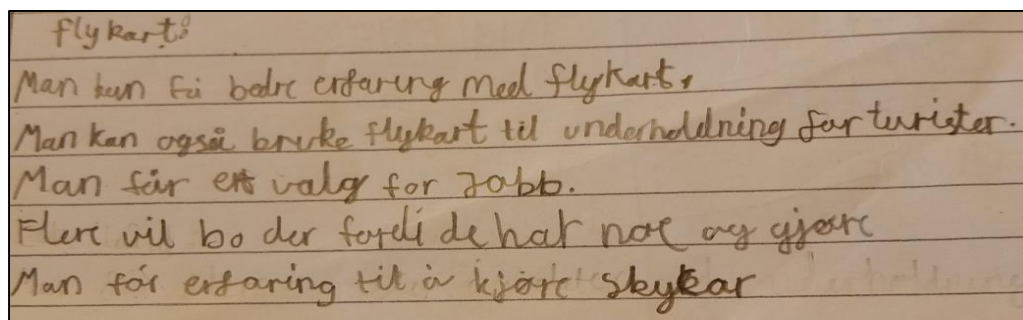 flykart:
Man kan få bedre erfaring med flykart.
Man kan også bruke flykart til underholdning for turister.
Man får et valg for Jobb.
Flere vil bo der fordi de har noe og gjøre
Man får erfaring til å kjøre skykar